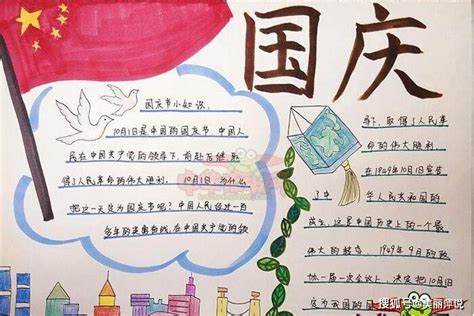 国庆
国庆节小知识。
10月1日是中国的国庆节，中国人
民在中国共产党的领导下，前赴后继取
得了人民革命的伟大胜利。10月1日为什么
把这一天定为国庆节呢？中国人民经过一百
多年的英勇奋战，在中国共产党的领
导下，取得了人民革
命的伟大胜利，
在1949年10月1日宣告
了中 华人民共和国的
成立，这是中国历史上的一个最
伟大的转变。1949年9月的政
协一届一次会议上，决定把10月1日
搜狐号@美丽萍说